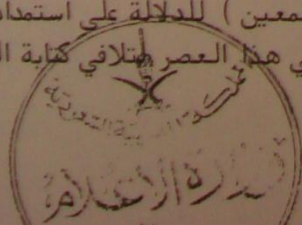 معين ) للدلالة على استمداد
هذا العصر لتلافي كتابة
المملكة العربية السعودية
وزارة الإعلام